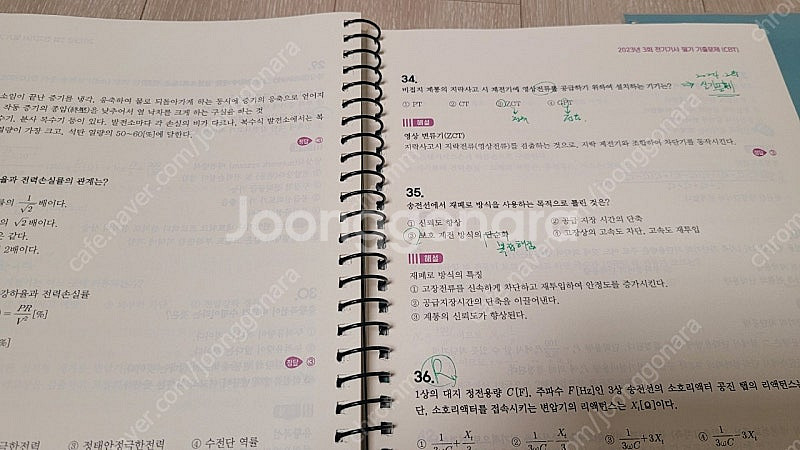 소임이 끝난 증기를 냉각, 응축하여 물로 되돌아가게 하는 동시에 증기의 응축으로 얻어지
작동 증기의 종압(終壓)을 낮추어서 열 낙차를 크게 하는 구실을 하는 것
수기, 분사 복수기 등이 있다. 발전소마다 각 손실의 비가 다르나, 복수식 발전소에서는 복
열량이 가장 크고, 석탄 열량의 50~60[%]에 달한다.
정답 ③
율과 전력손실률의 관계는?
률의 1/√2 배이다.
의 √2 배이다.
은 같다.
2배이다.
강하율과 전력손실률
= PR/V² [%]
[%]
정답 ③
극한전력 ③ 정태안정극한전력 ④ 수전단 역률
2023년 3회 전기기사 필기 기출문제(CBT)
34.
비접지 계통의 지락사고 시 계전기에 영상전류를 공급하기 위하여 설치하는 기기는?
① PT ② CT ③ ZCT ④ GPT
해설
영상 변류기(ZCT)
지락사고시 지락전류(영상전류)를 검출하는 것으로, 지락 계전기와 조합하여 차단기를 동작시킨다.
정답 ③
35.
송전선에서 재폐로 방식을 사용하는 목적으로 틀린 것은?
① 신뢰도 향상 ② 공급 지장 시간의 단축
③ 보호 계전 방식의 단순화 ④ 고장상의 고속도 차단, 고속도 재투입
해설
재폐로 방식의 특징
① 고장전류를 신속하게 차단하고 재투입하여 안정도를 증가시킨다.
② 공급지장시간의 단축을 이끌어낸다.
③ 계통의 신뢰도가 향상된다.
36. R
1상의 대지 정전용량 C[F], 주파수 F[Hz]인 3상 송전선의 소호리액터 공진 탭의 리액턴스는
단, 소호리액터를 접속시키는 변압기의 리액턴스는 Xt[Ω]이다.
① 1/3ωC + Xt/3 ② 1/3ωC - Xt/3 ③ 1/3ωC + 3Xt ④ 1/3ωC - 3Xt
Joonggonara
cafe.naver.com/joonggonara